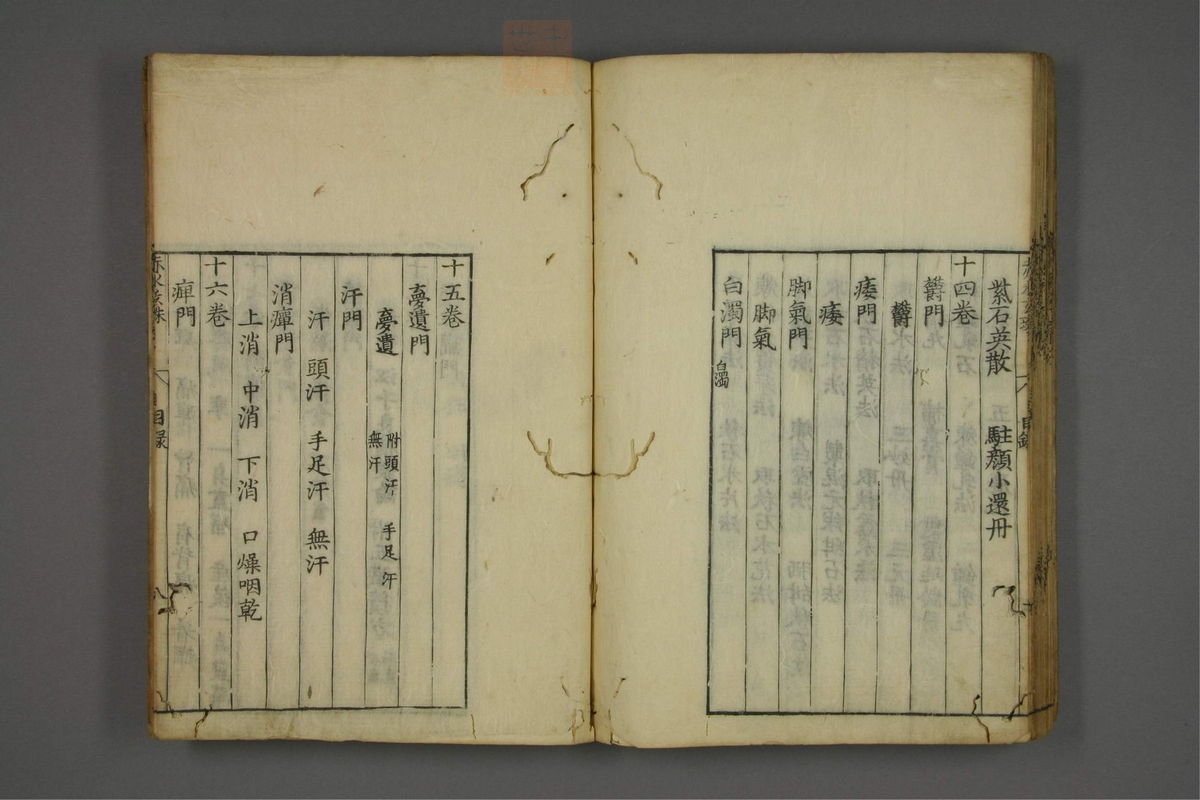 紫石英散　駐顏小還丹
十四卷
欝門
欝
痿門
痿
脚氣門
脚氣
白濁門　白濁
十五卷
夢遺門
夢遺　附頭汗　手足汗　無汗
汗門
汗　頭汗　手足汗　無汗
消癉門
上消　中消　下消　口燥咽乾
十六卷
痺門
赤水玄珠　目录